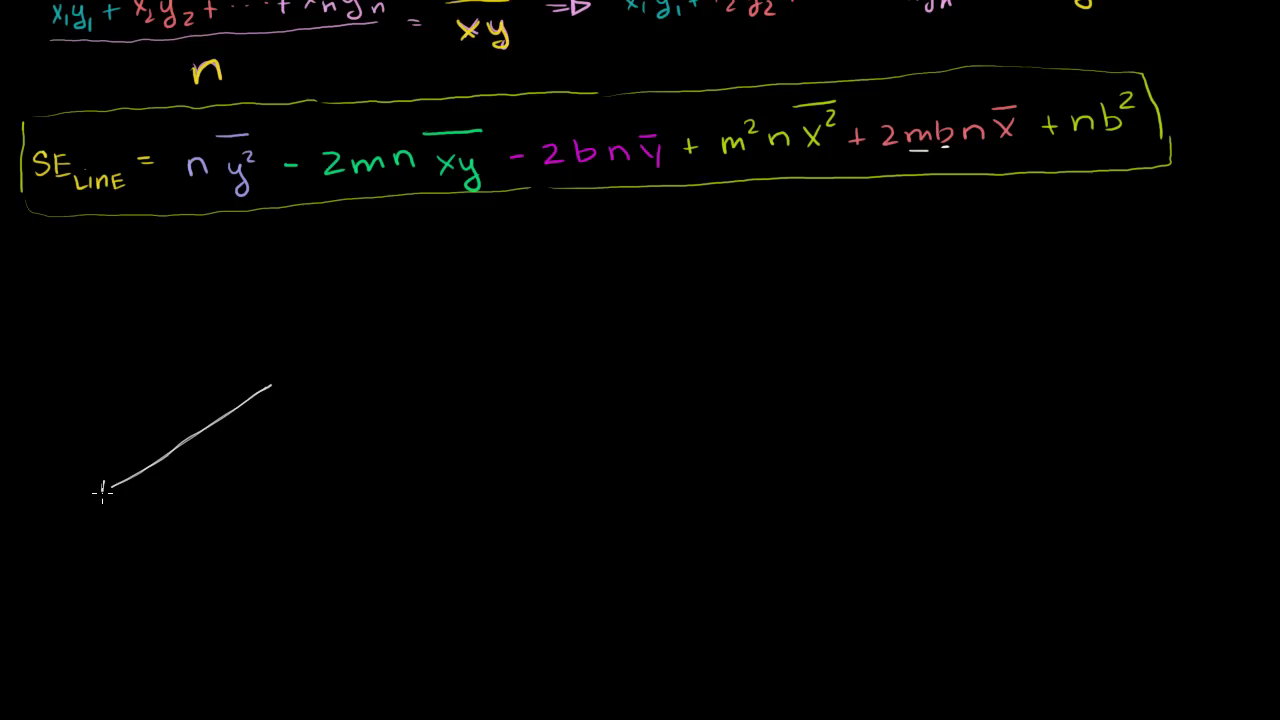 x₁y₁ + x₂y₂ + ... + xₙyₙ = x̅y̅ ⇒ x₁y₁ + x₂y₂
n
SE_LINE = n y̅²̅ - 2mn x̅y̅ - 2bn y̅ + m²n x̅²̅ + 2mbn x̅ + nb²